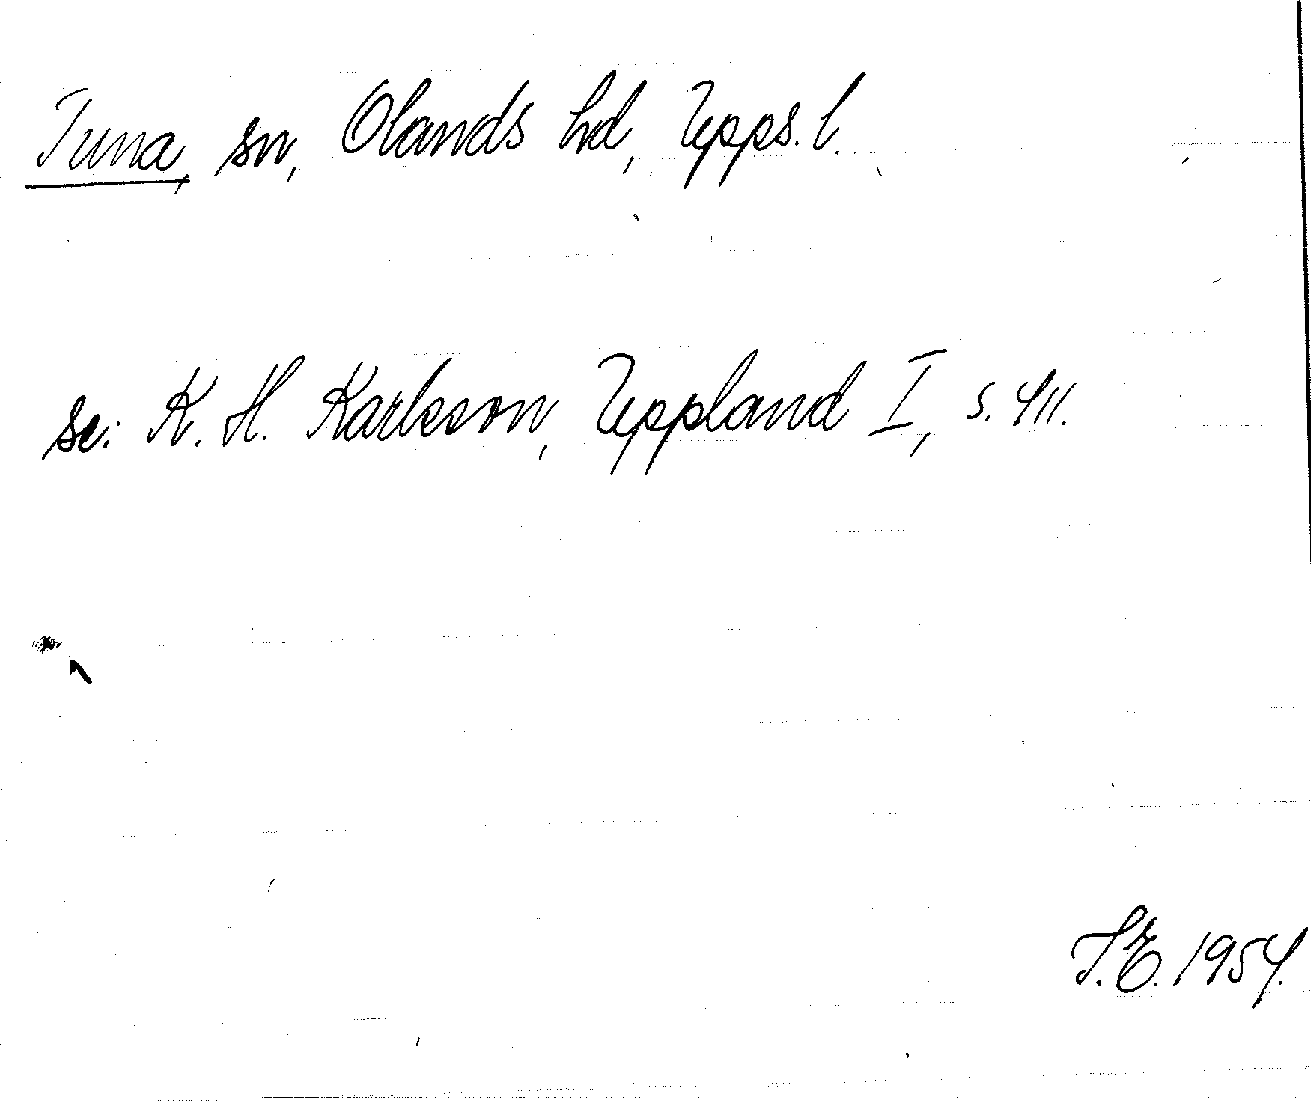 Tuna, sn, Olands hd, Upps. l.
se: K. H. Karlsson, Uppland I, s. 411.
T.E. 1954.